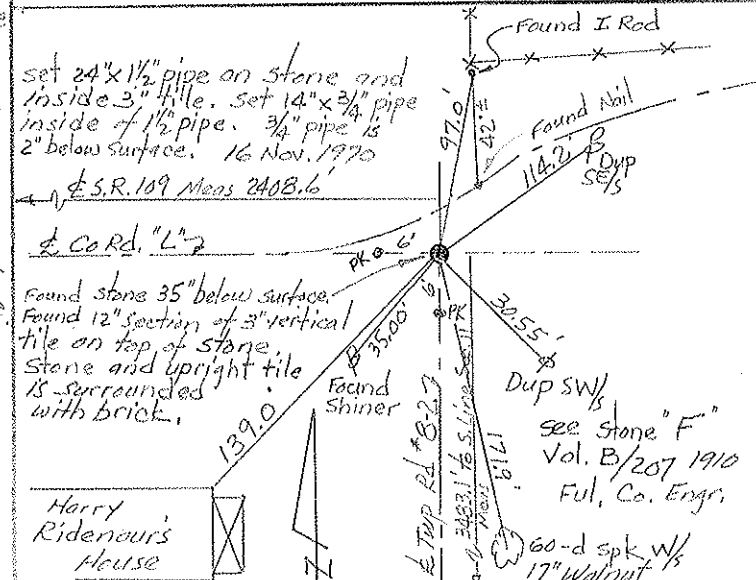 Found I Rod
set 24"x1½" pipe on stone and
inside 3" tile. Set 14"x¾" pipe
inside of 1½" pipe. ¾" pipe is
2" below surface. 16 Nov. 1970
97.0'
42.±
Found Nail
114.2'
Dup
SE/s
℄ S.R. 109 Meas 2408.6'
℄ Co Rd. "L"
PK
6'
Found stone 35" below surface.
Found 12" section of 3" vertical
tile on top of stone.
Stone and upright tile
is surrounded
with brick.
35.00'
Found
Shiner
6'
PK
30.55'
Dup SW/s
see stone "F"
Vol. B/207 1910
Ful. Co. Engr.
139.0'
Harry
Ridenour's
House
N
℄ Twp Rd #8-2
3483.1' to S. Line Sec 11
Meas
60-d spk W/s
17" Walnut